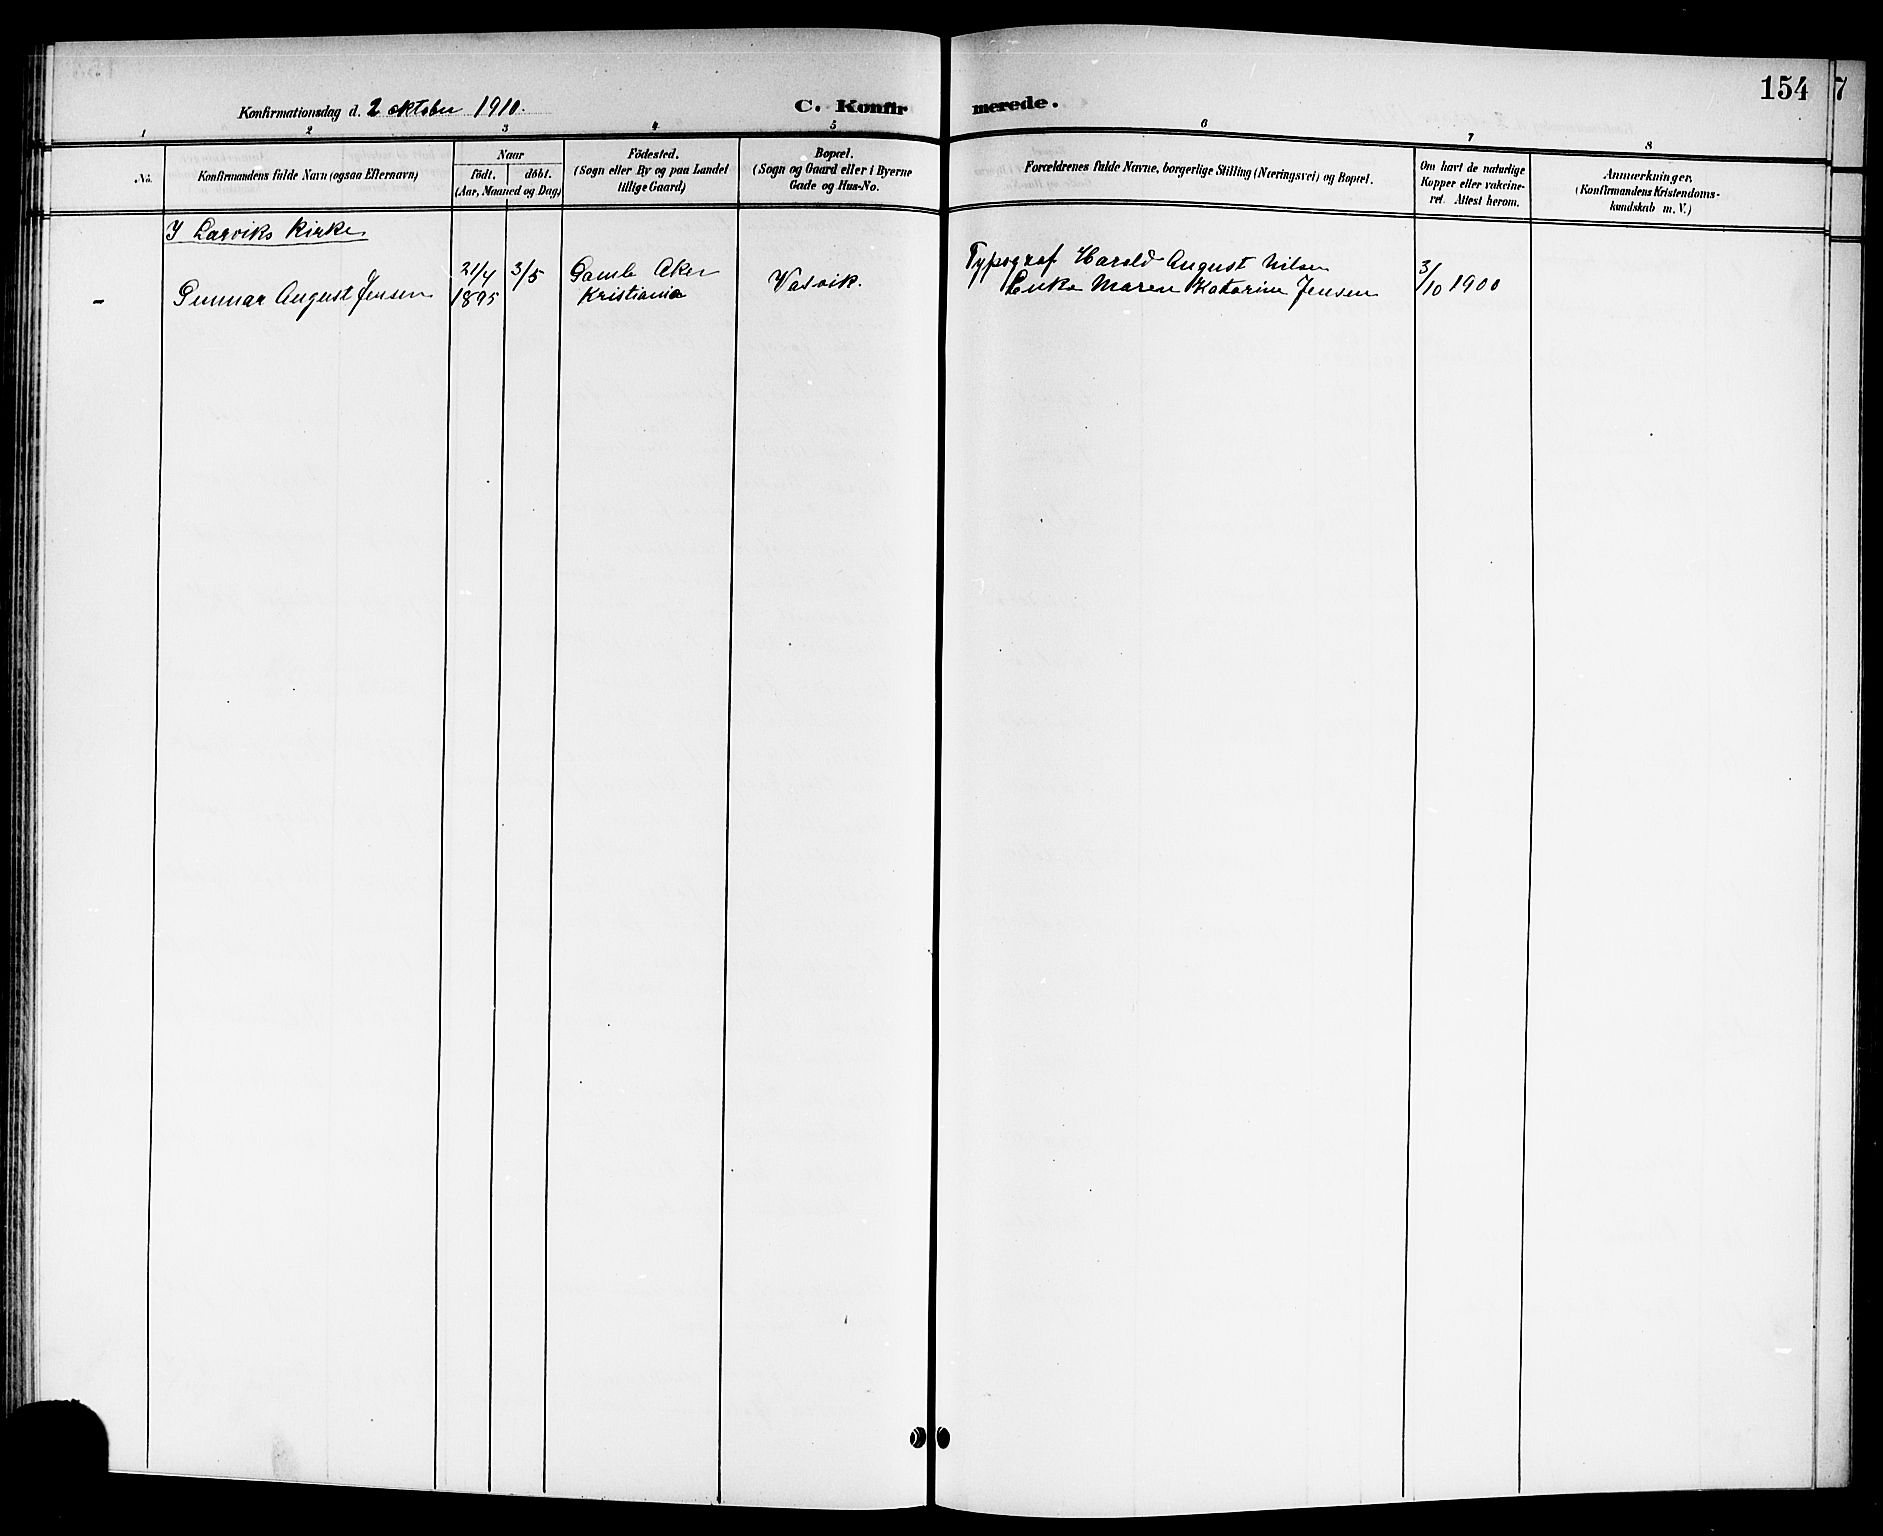 154
7
Konfirmationsdag d. 2 oktober 1910.
C. Konfirmerede.
1 2 3 4 5 6 7 8
No.
Konfirmandens fulde Navn (ogsaa Efternavn)
Naar
födt. döbt.
(Aar, Maaned og Dag)
Födested.
(Sogn eller By og paa Landet
tillige Gaard)
Bopæl.
(Sogn og Gaard eller i Byerne
Gade og Hus-No.
Forældrenes fulde Navne, borgerlige Stilling (Næringsvei) og Bopæl.
Om havt de naturlige
Kopper eller vakcine-
ret. Attest herom.
Anmærkninger,
(Konfirmandens Kristendoms-
kundskab m. V.)
I Larviks Kirke
- Gunnar August Jensen
21/4
1895
3/5
Gamle Aker
Kristiania
Varvik.
Typograf Harald August Nilsen
Enke Maren Katarine Jensen
3/10 1900